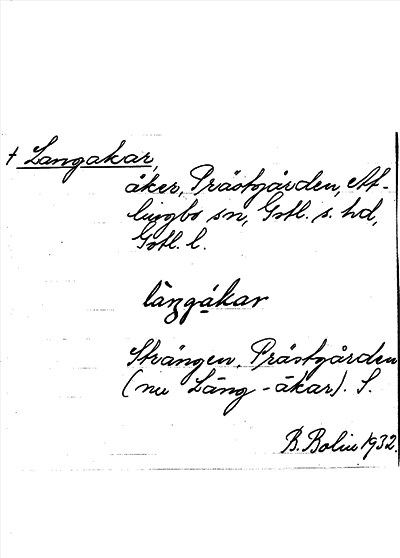 † Langakar,
åker, Prästgården, At-
lingbo sn, Gotl. s. hd,
Gotl. l.
làŋgákar
Strängen, Prästgården
(nu Läng-åkar). S.
B. Bolin 1932.